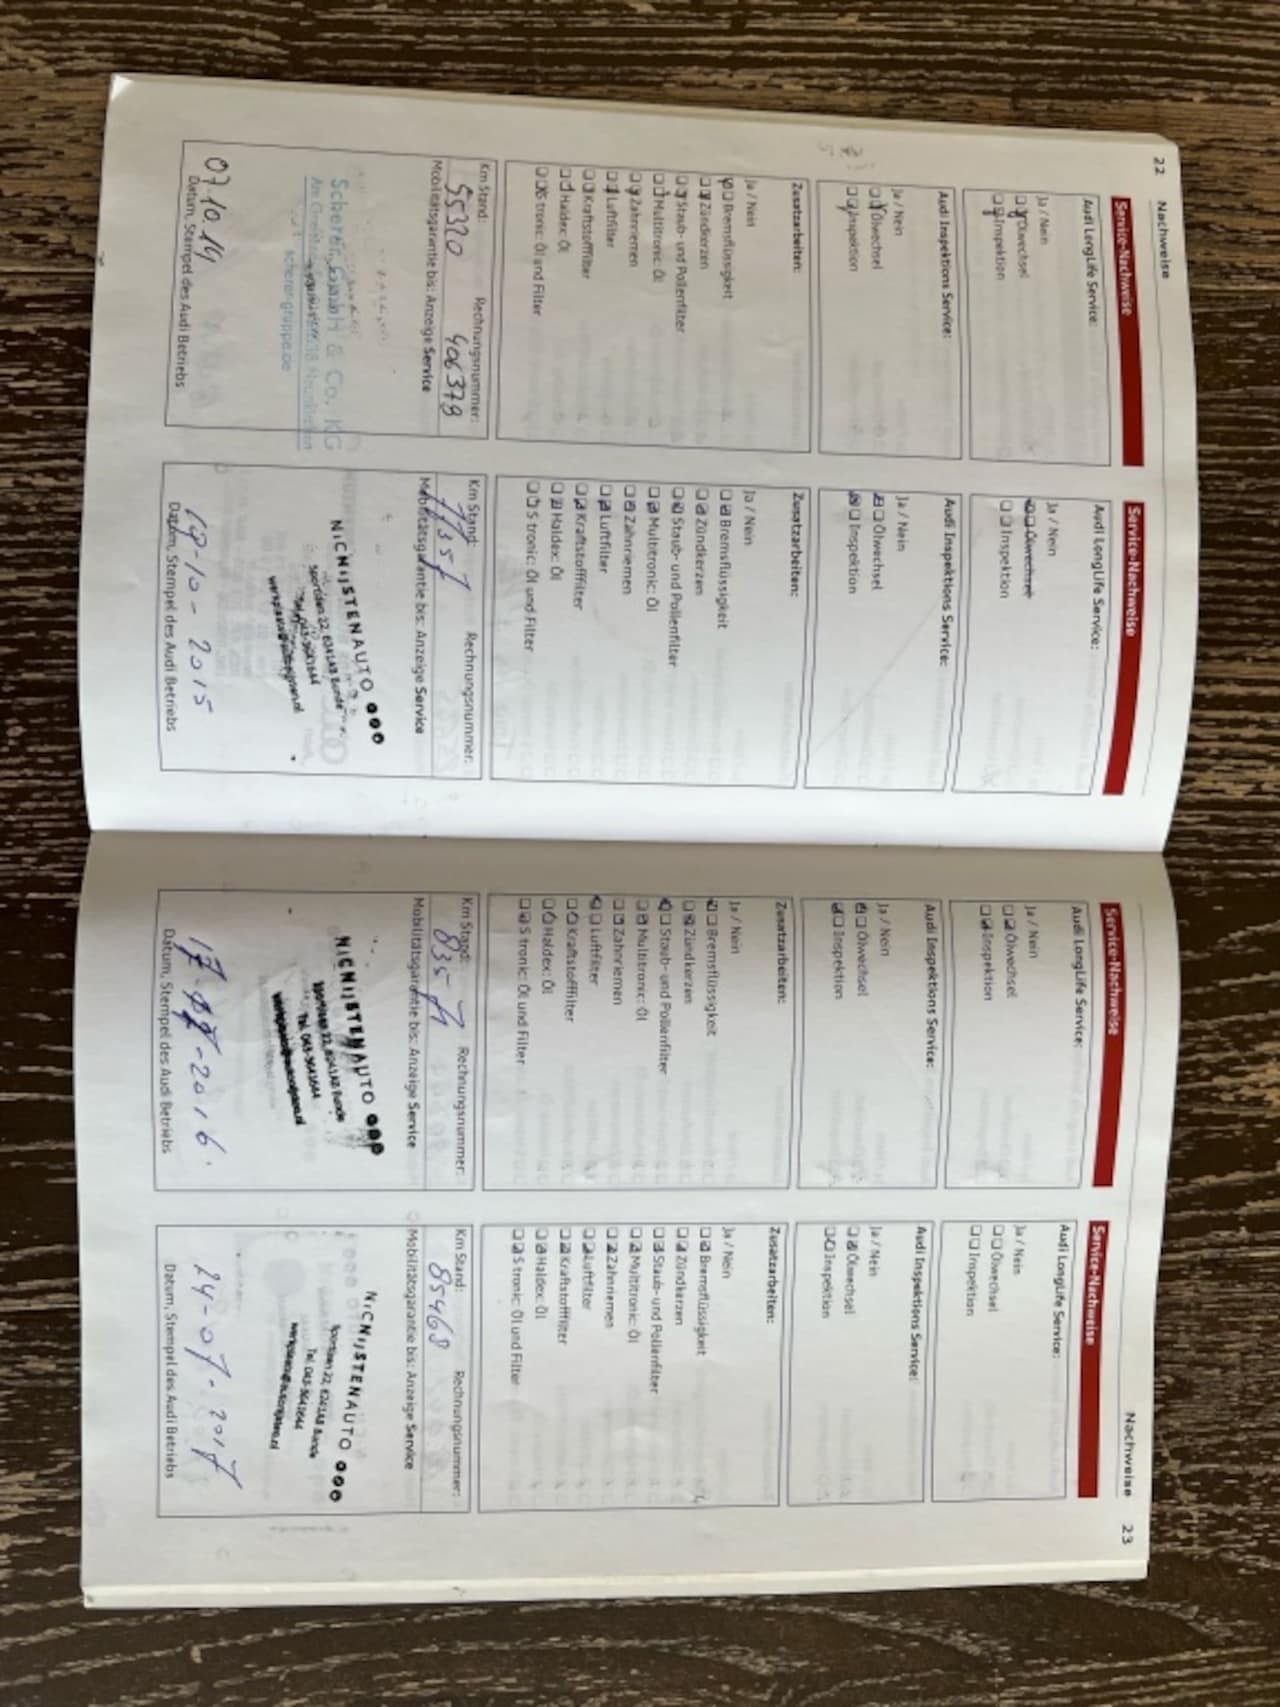 22
Nachweise
Service-Nachweise
Audi LongLife Service:
Ja / Nein
Ölwechsel
Inspektion
Audi Inspektions Service:
Ja / Nein
Ölwechsel
Inspektion
Zusatzarbeiten:
Ja / Nein
Bremsflüssigkeit
Zündkerzen
Staub- und Pollenfilter
Multitronic: Öl
Zahnriemen
Luftfilter
Kraftstofffilter
Haldex: Öl
S tronic: Öl und Filter
Km Stand: Rechnungsnummer:
55320 406378
Mobilitätsgarantie bis: Anzeige Service
Scherer GmbH & Co. KG
scherer-gruppe.de
07.10.14
Datum, Stempel des Audi Betriebs
Service-Nachweise
Audi LongLife Service:
Ja / Nein
Ölwechsel
Inspektion
Audi Inspektions Service:
Ja / Nein
Ölwechsel
Inspektion
Zusatzarbeiten:
Ja / Nein
Bremsflüssigkeit
Zündkerzen
Staub- und Pollenfilter
Multitronic: Öl
Zahnriemen
Luftfilter
Kraftstofffilter
Haldex: Öl
S tronic: Öl und Filter
Km Stand: Rechnungsnummer:
Mobilitätsgarantie bis: Anzeige Service
NIC NIJSTEN AUTO
Sportlaan 22, 6241AB Bunde
Tel. 043-3641644
19-10-2015
Datum, Stempel des Audi Betriebs
Service-Nachweise
Audi LongLife Service:
Ja / Nein
Ölwechsel
Inspektion
Audi Inspektions Service:
Ja / Nein
Ölwechsel
Inspektion
Zusatzarbeiten:
Ja / Nein
Bremsflüssigkeit
Zündkerzen
Staub- und Pollenfilter
Multitronic: Öl
Zahnriemen
Luftfilter
Kraftstofffilter
Haldex: Öl
S tronic: Öl und Filter
Km Stand: Rechnungsnummer:
83571
Mobilitätsgarantie bis: Anzeige Service
NIC NIJSTEN AUTO
Sportlaan 22, 6241AB Bunde
Tel. 043-3641644
Datum, Stempel des Audi Betriebs
Nachweise
23
Service-Nachweise
Audi LongLife Service:
Ja / Nein
Ölwechsel
Inspektion
Audi Inspektions Service:
Ja / Nein
Ölwechsel
Inspektion
Zusatzarbeiten:
Ja / Nein
Bremsflüssigkeit
Zündkerzen
Staub- und Pollenfilter
Multitronic: Öl
Zahnriemen
Luftfilter
Kraftstofffilter
Haldex: Öl
S tronic: Öl und Filter
Km Stand: Rechnungsnummer:
85468
Mobilitätsgarantie bis: Anzeige Service
NIC NIJSTEN AUTO
Sportlaan 22, 6241AB Bunde
Tel. 043-3641644
24-07-2017
Datum, Stempel des Audi Betriebs